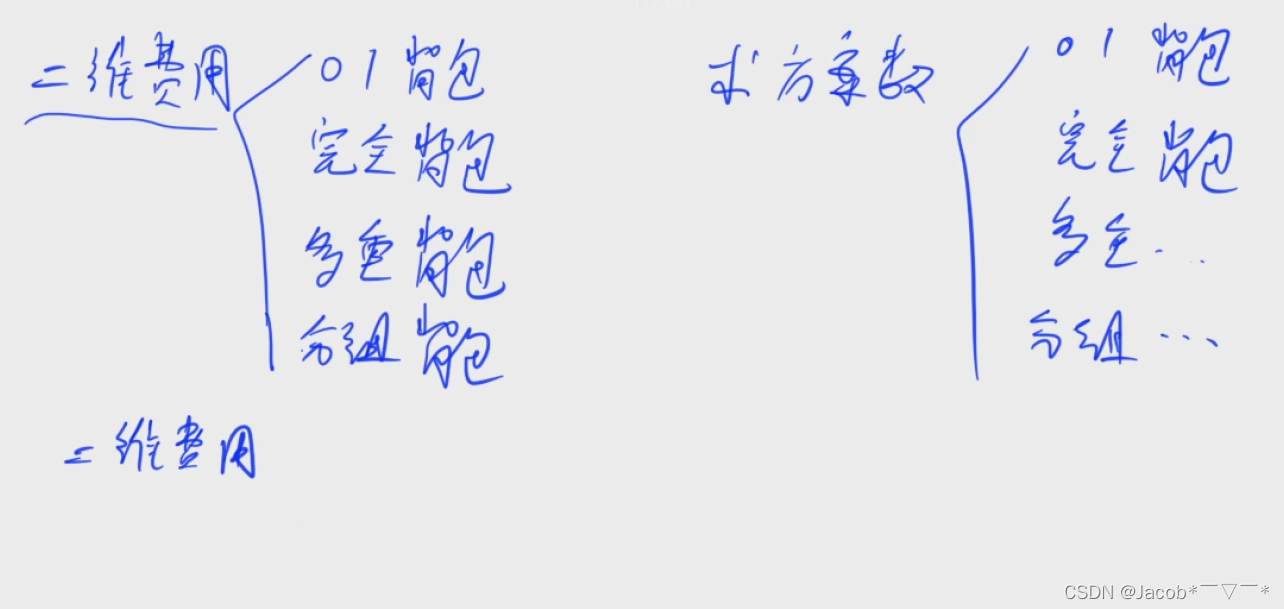 二维费用
01背包
完全背包
多重背包
分组背包
二维费用
求方案数
01背包
完全背包
多重...
分组...
CSDN @Jacob*￣▽￣*